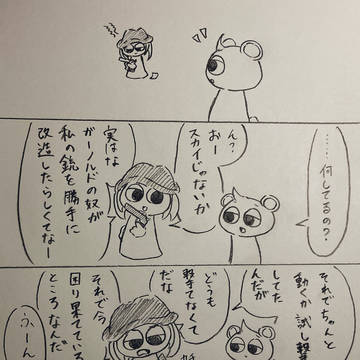 ……何してるの?
ん?
おー
スカイじゃないか
実はな
ガーノルドの奴が
私の銃を勝手に
改造したらしくてなー
それでちゃんと
動くか試し撃ち
してた
んだが
どうも
軽てなくて
だな
それで今
困り果てている
ところなんだ
ふーん